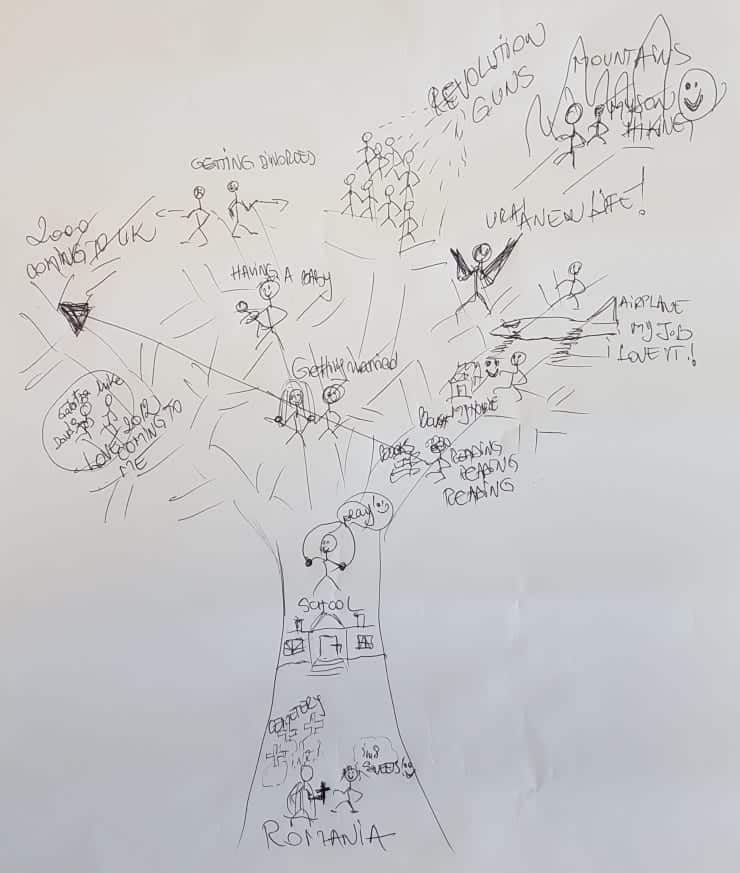 REVOLUTION
GUNS
MOUNTAINS
MY SON
HIKING
GETTING DIVORCED
2000
COMING TO UK
URA! A NEW LIFE!
HAVING A BABY
AIRPLANE
MY JOB
I LOVE IT!
Getting married
BOUGHT MY HOUSE
Mike
LOVE 2012
COMING TO
ME
BOOKS
READING
READING
READING
SCHOOL
CEMETERY
ROMANIA